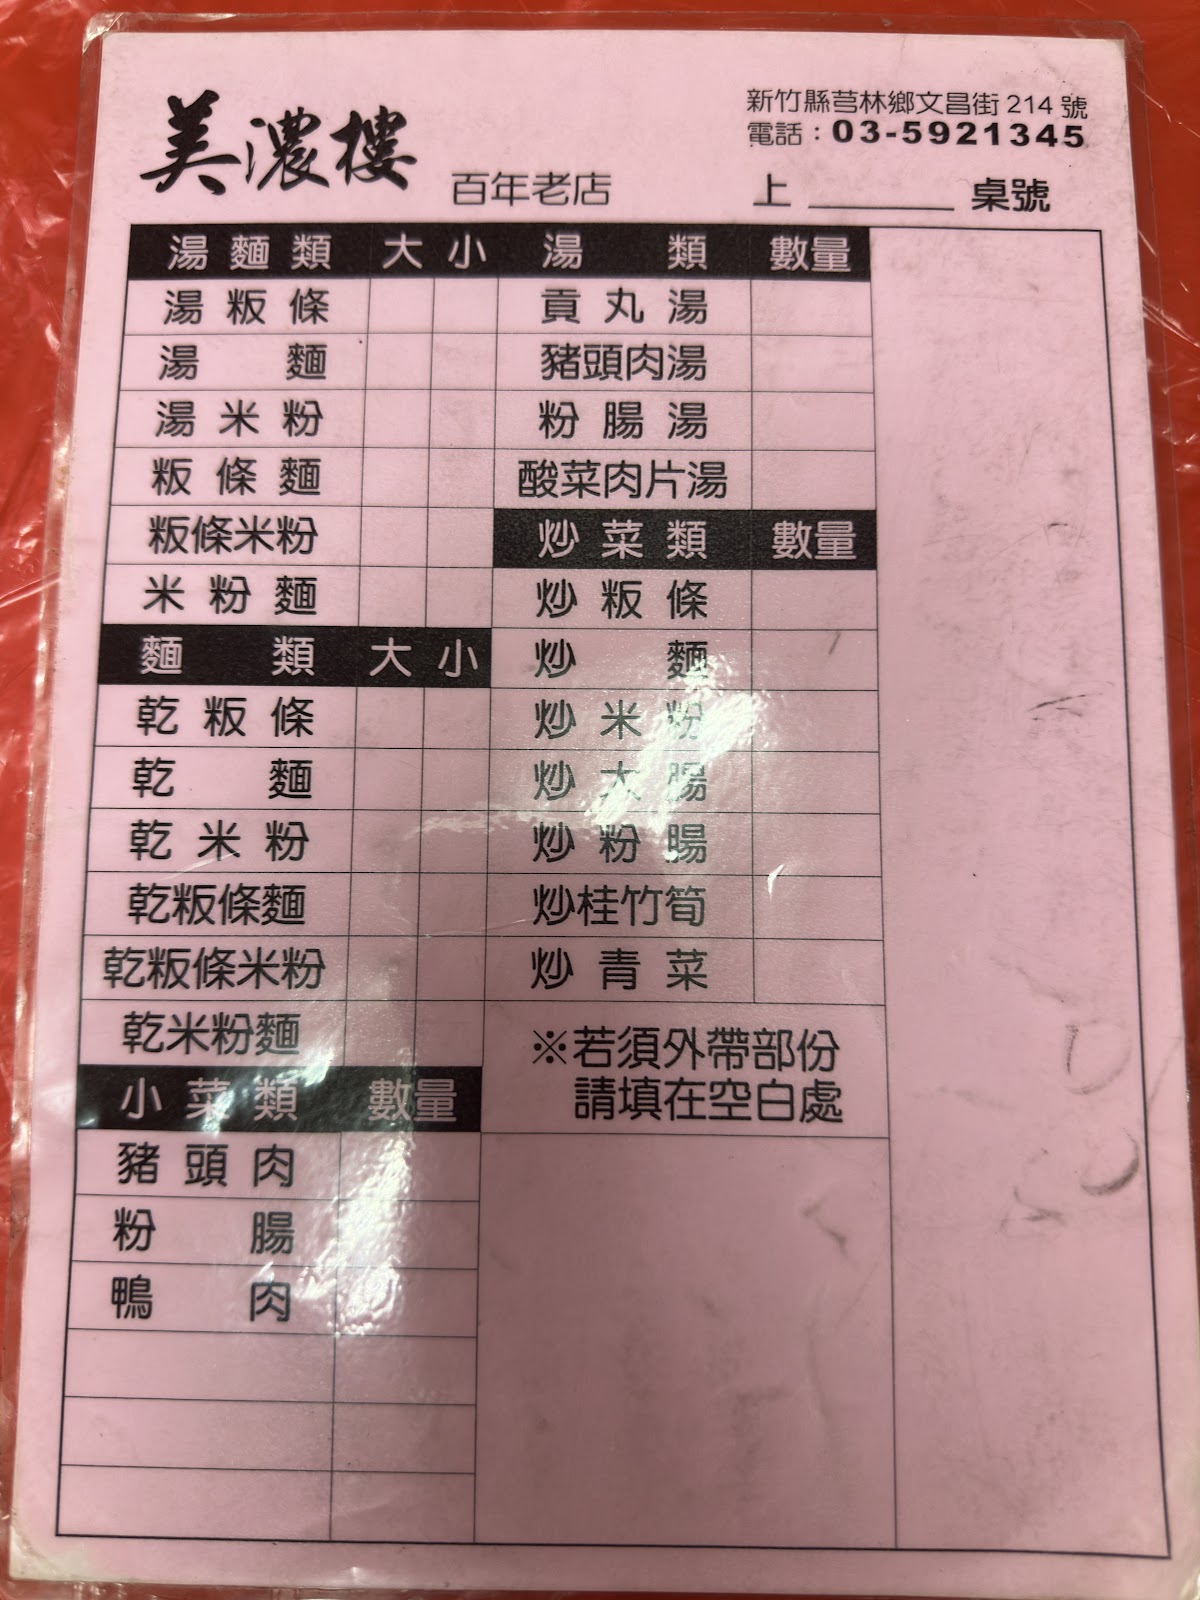 美濃樓
百年老店
新竹縣芎林鄉文昌街 214 號
電話：03-5921345
上 ______ 桌號
湯麵類 大 小
湯粄條
湯麵
湯米粉
粄條麵
粄條米粉
米粉麵
麵類 大 小
乾粄條
乾麵
乾米粉
乾粄條麵
乾粄條米粉
乾米粉麵
小菜類 數量
豬頭肉
粉腸
鴨肉
湯類 數量
貢丸湯
豬頭肉湯
粉腸湯
酸菜肉片湯
炒菜類 數量
炒粄條
炒麵
炒米粉
炒大腸
炒粉腸
炒桂竹筍
炒青菜
※若須外帶部份
請填在空白處